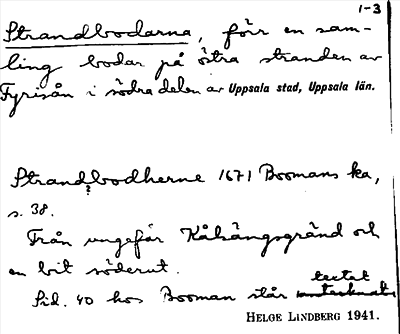 1-3
Strandbodarna, förr en sam-
ling bodar på östra stranden av
Fyrisån i södra delen av Uppsala stad, Uppsala län.
Strandbodherne 1671 Boomans ka,
?
s. 38.
Från ungefär Kålsängsgränd och
en bit söderut.
textat
Sid. 40 hos Booman står
HELGE LINDBERG 1941.